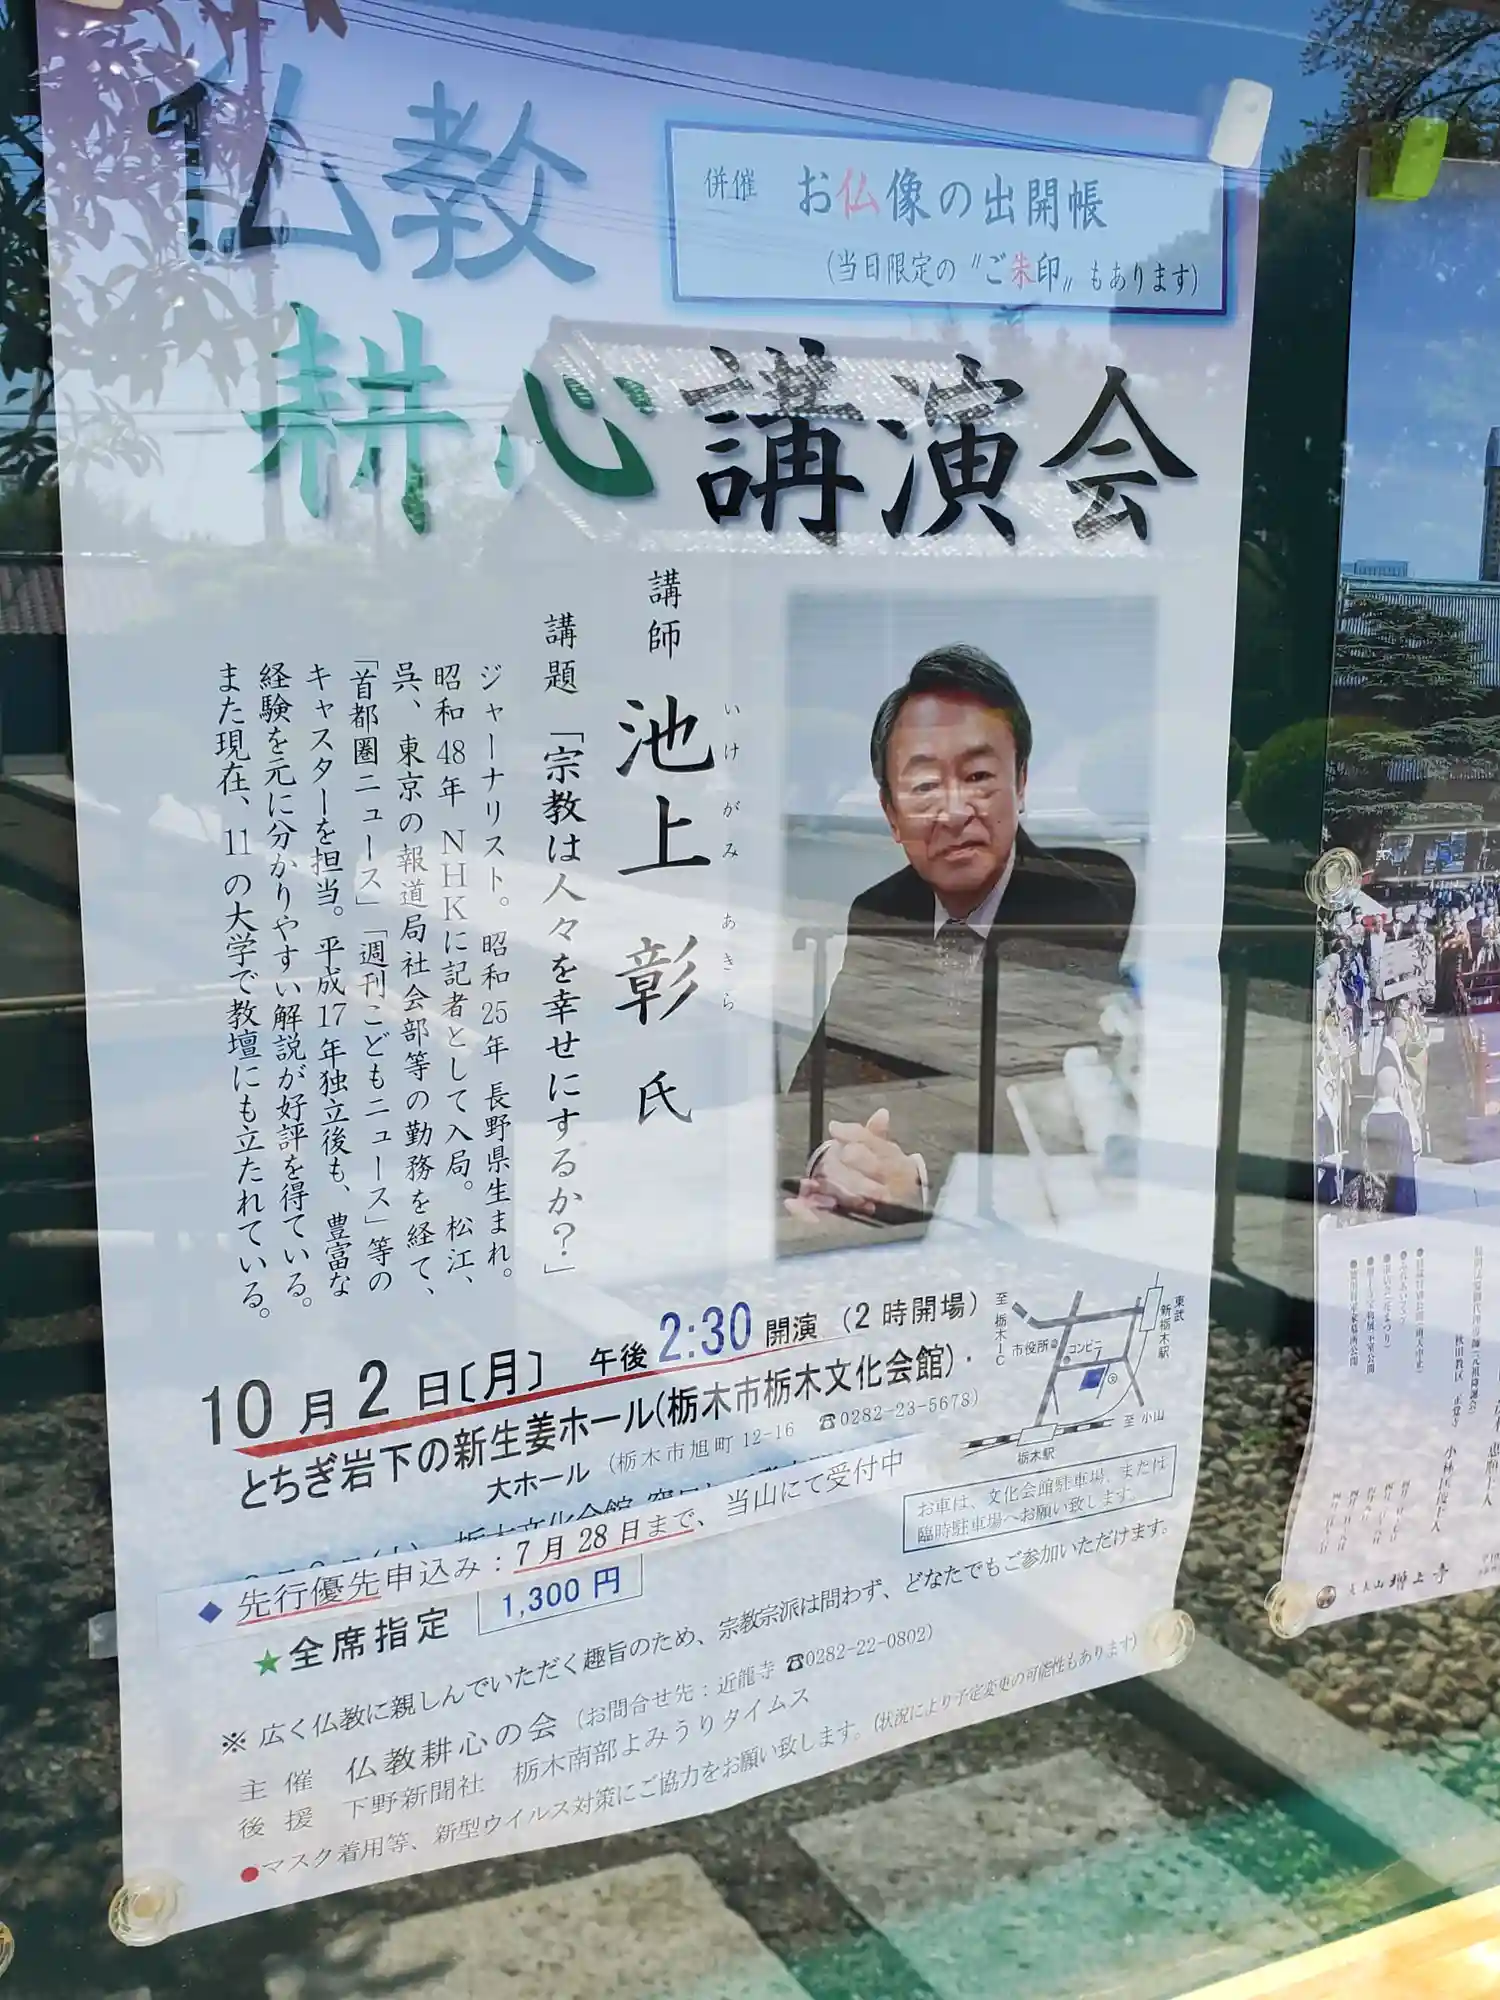 仏教
併催 お仏像の出開帳
(当日限定の〝ご朱印〟もあります)
耕心講演会
講師 池上 彰 氏
いけがみ あきら
講題 「宗教は人々を幸せにするか?」
ジャーナリスト。昭和25年 長野県生まれ。
昭和48年 NHKに記者として入局。松江、
呉、東京の報道局社会部等の勤務を経て、
「首都圏ニュース」「週刊こどもニュース」等の
キャスターを担当。平成17年独立後も、豊富な
経験を元に分かりやすい解説が好評を得ている。
また現在、11の大学で教壇にも立たれている。
10月2日[月] 午後2:30開演(2時開場)
とちぎ岩下の新生姜ホール(栃木市栃木文化会館)・
大ホール (栃木市旭町12-16 ☎0282-23-5678)
至栃木IC
市役所
コンビニ
東武
新栃木駅
至 小山
栃木駅
お車は、文化会館駐車場、または
臨時駐車場へお願い致します。
◆先行優先申込み:7月28日まで、当山にて受付中
★全席指定 1,300円
※ 広く仏教に親しんでいただく趣旨のため、宗教宗派は問わず、どなたでもご参加いただけます。
主 催 仏教耕心の会 (お問合せ先:近龍寺 ☎0282-22-0802)
後 援 下野新聞社 栃木南部よみうりタイムス
●マスク着用等、新型ウイルス対策にご協力をお願い致します。(状況により予定変更の可能性もあります)